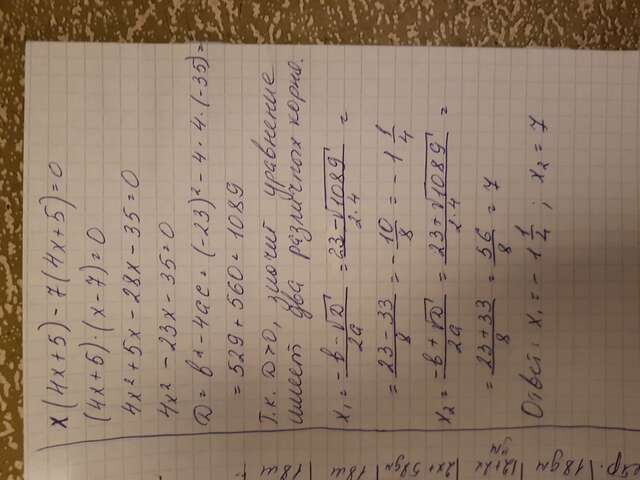 x(4x+5)-7(4x+5)=0
(4x+5)·(x-7)=0
4x²+5x-28x-35=0
4x²-23x-35=0
D=b²-4ac=(-23)²-4·4·(-35)=
=529+560=1089
Т.к. D>0, значит уравнение
имеет два различных корня.
x₁ = (-b-√D)/2a = (23-√1089)/2·4 =
= (23-33)/8 = -10/8 = -1 1/4
x₂ = (-b+√D)/2a = (23+√1089)/2·4 =
= (23+33)/8 = 56/8 = 7
Ответ: x₁ = -1 1/4 ; x₂ = 7
18дм
2x+58дм
18м
18м